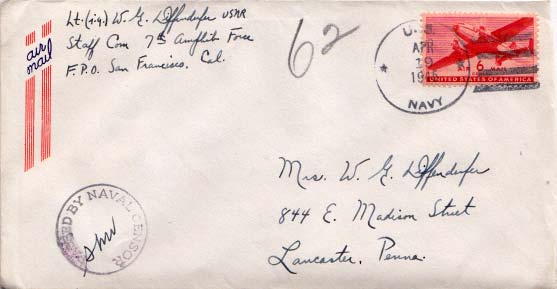 Lt. (jg.) W. G. Diffenderfer USNR
Staff Com 7th Amphib Force
F.P.O. San Francisco, Cal.
air mail
62
U.S.
APR
19
NAVY
6¢ AIR MAIL
UNITED STATES OF AMERICA
Mrs. W. G. Diffenderfer
844 E. Madison Street
Lancaster, Penna.
PASSED BY NAVAL CENSOR